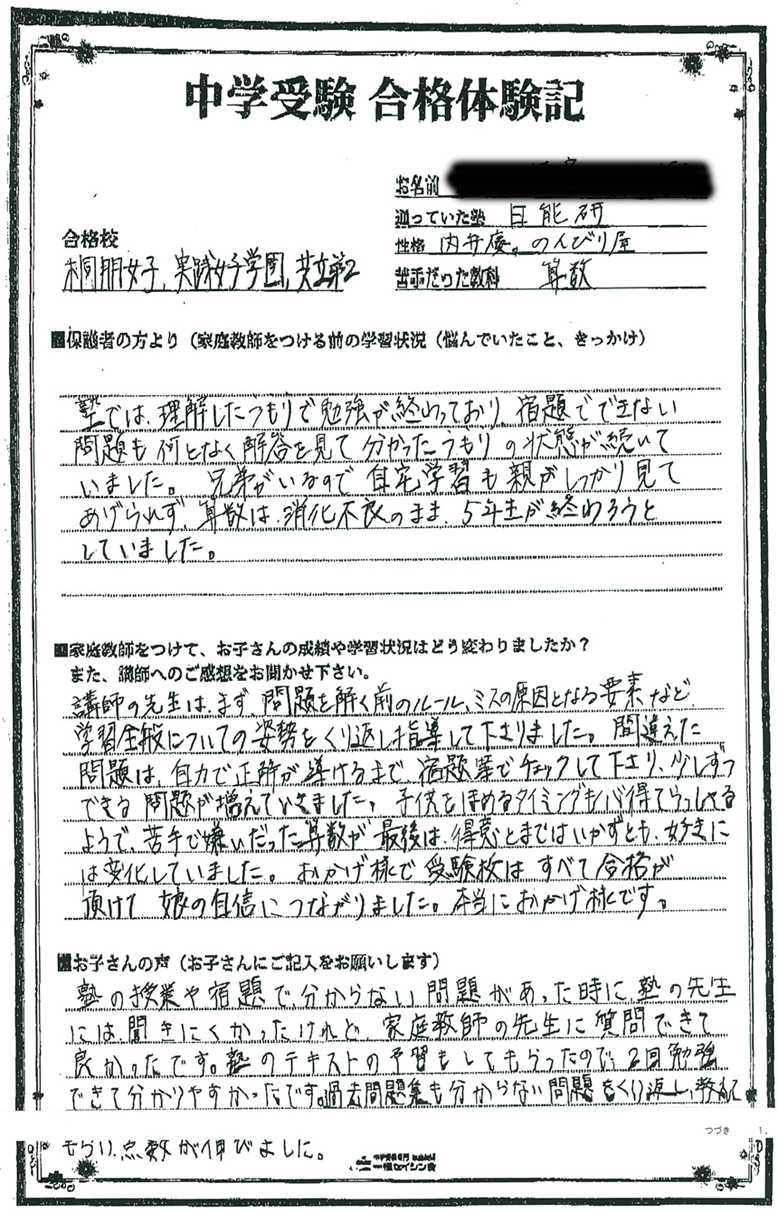 中学受験 合格体験記
お名前
通っていた塾 日能研
性格 内弁慶。のんびり屋
苦手だった教科 算数
合格校
桐朋女子、実践女子学園、共立第2
■保護者の方より（家庭教師をつける前の学習状況（悩んでいたこと、きっかけ）
塾では、理解したつもりで勉強が終わっており、宿題でできない
問題も何となく解答を見て分かったつもりの状態が続いて
いました。兄弟がいるので自宅学習も親がしっかり見て
あげられず、算数は、消化不良のまま、5年生が終わろうと
していました。
■家庭教師をつけて、お子さんの成績や学習状況はどう変わりましたか？
また、講師へのご感想をお聞かせ下さい。
講師の先生は、まず、問題を解く前のルール、ミスの原因となる要素など、
学習全般についての姿勢をくり返し指導して下さりました。間違えた
問題は、自力で正解が導けるまで、宿題等でチェックして下さり、少しずつ
できる問題が増えていきました。子供をほめるタイミングも心得てらっしゃる
ようで、苦手で嫌いだった算数が最後は、得意とまではいかずとも、好きに
は変化していました。おかげ様で受験校はすべて合格が
頂けて娘の自信につながりました。本当におかげ様です。
■お子さんの声（お子さんにご記入をお願いします）
塾の授業や宿題で、分からない問題があった時に、塾の先生
には、聞きにくかったけれど、家庭教師の先生に質問できて
良かったです。塾のテキストの予習もしてもらったので、2回勉強
できて分かりやすかったです。過去問題集も分からない問題をくり返し、教えて
つづき 1.
もらい、点数が伸びました。